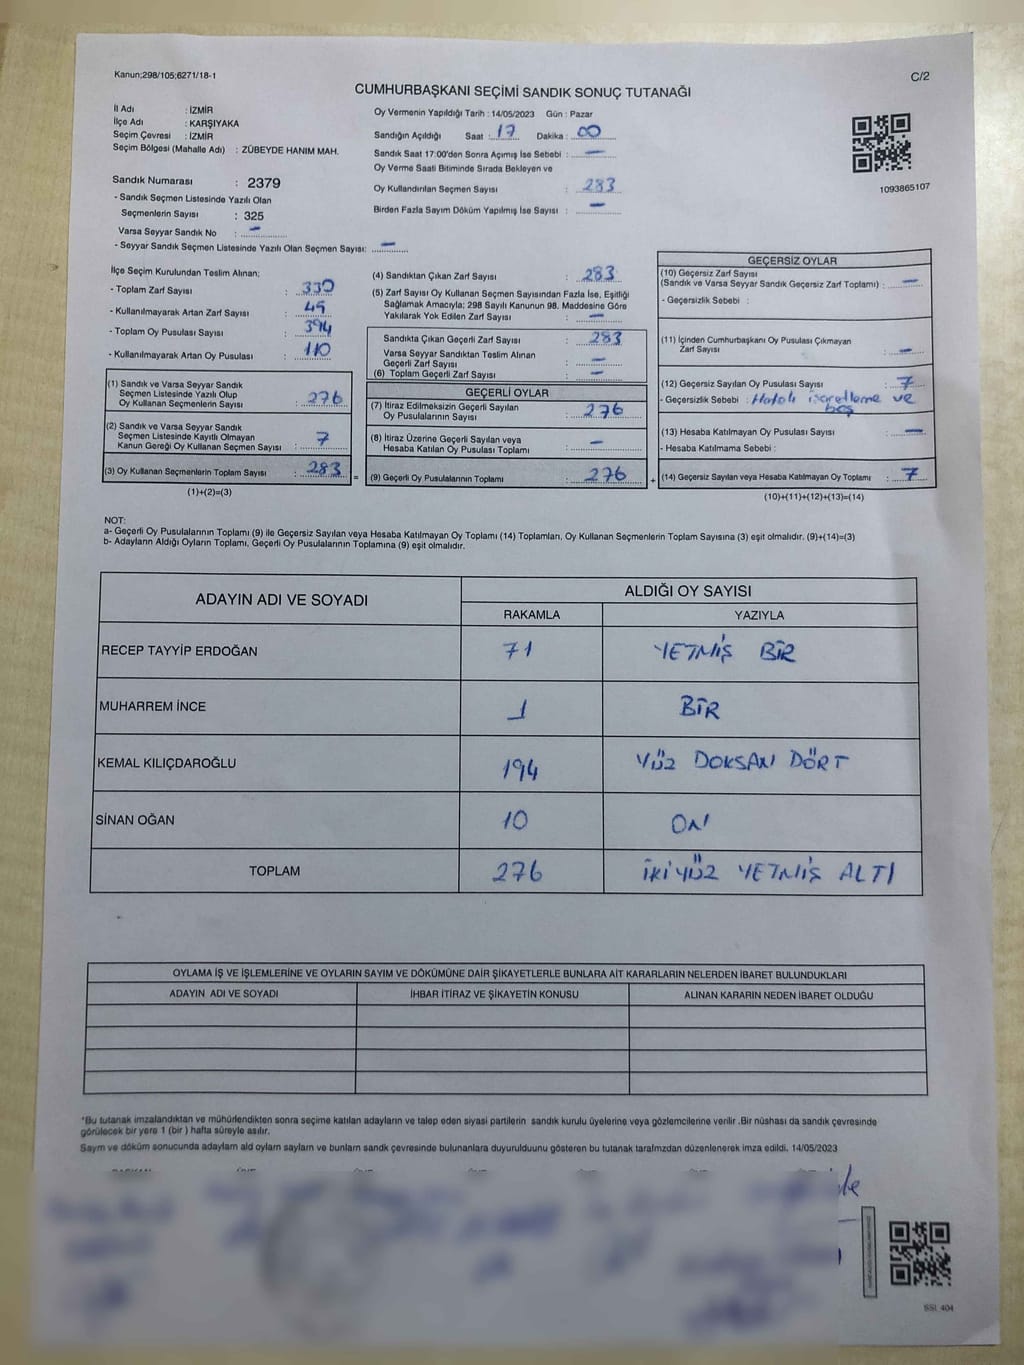 Kanun;298/105;6271/18-1
C/2
CUMHURBAŞKANI SEÇİMİ SANDIK SONUÇ TUTANAĞI
İl Adı : İZMİR
İlçe Adı : KARŞIYAKA
Seçim Çevresi : İZMİR
Seçim Bölgesi (Mahalle Adı) : ZÜBEYDE HANIM MAH.
Sandık Numarası : 2379
- Sandık Seçmen Listesinde Yazılı Olan
Seçmenlerin Sayısı : 325
Varsa Seyyar Sandık No : -
- Seyyar Sandık Seçmen Listesinde Yazılı Olan Seçmen Sayısı: -
Oy Vermenin Yapıldığı Tarih : 14/05/2023 Gün : Pazar
Sandığın Açıldığı Saat : 17 Dakika : 00
Sandık Saat 17:00'den Sonra Açımış İse Sebebi : -
Oy Verme Saati Bitiminde Sırada Bekleyen ve
Oy Kullandırılan Seçmen Sayısı : 283
Birden Fazla Sayım Döküm Yapılmış İse Sayısı : -
1093865107
İlçe Seçim Kurulundan Teslim Alınan;
- Toplam Zarf Sayısı : 330
- Kullanılmayarak Artan Zarf Sayısı : 45
- Toplam Oy Pusulası Sayısı : 394
- Kullanılmayarak Artan Oy Pusulası : 110
(1) Sandık ve Varsa Seyyar Sandık
Seçmen Listesinde Yazılı Olup
Oy Kullanan Seçmenlerin Sayısı : 276
(2) Sandık ve Varsa Seyyar Sandık
Seçmen Listesinde Kayıtlı Olmayan
Kanun Gereği Oy Kullanan Seçmen Sayısı : 7
(3) Oy Kullanan Seçmenlerin Toplam Sayısı : 283
(1)+(2)=(3)
(4) Sandıktan Çıkan Zarf Sayısı : 283
(5) Zarf Sayısı Oy Kullanan Seçmen Sayısından Fazla İse, Eşitliği
Sağlamak Amacıyla; 298 Sayılı Kanunun 98. Maddesine Göre
Yakılarak Yok Edilen Zarf Sayısı : -
Sandıkta Çıkan Geçerli Zarf Sayısı : 283
Varsa Seyyar Sandıktan Teslim Alınan
Geçerli Zarf Sayısı : -
(6) Toplam Geçerli Zarf Sayısı : -
GEÇERLİ OYLAR
(7) İtiraz Edilmeksizin Geçerli Sayılan
Oy Pusulalarının Sayısı : 276
(8) İtiraz Üzerine Geçerli Sayılan veya
Hesaba Katılan Oy Pusulası Toplamı : -
= (9) Geçerli Oy Pusulalarının Toplamı : 276 +
GEÇERSİZ OYLAR
(10) Geçersiz Zarf Sayısı
(Sandık ve Varsa Seyyar Sandık Geçersiz Zarf Toplamı) : -
- Geçersizlik Sebebi :
(11) İçinden Cumhurbaşkanı Oy Pusulası Çıkmayan
Zarf Sayısı : -
(12) Geçersiz Sayılan Oy Pusulası Sayısı : 7
- Geçersizlik Sebebi : Hatalı işaretleme ve
boş
(13) Hesaba Katılmayan Oy Pusulası Sayısı : -
- Hesaba Katılmama Sebebi :
(14) Geçersiz Sayılan veya Hesaba Katılmayan Oy Toplamı : 7
(10)+(11)+(12)+(13)=(14)
NOT:
a- Geçerli Oy Pusulalarının Toplamı (9) ile Geçersiz Sayılan veya Hesaba Katılmayan Oy Toplamı (14) Toplamları, Oy Kullanan Seçmenlerin Toplam Sayısına (3) eşit olmalıdır. (9)+(14)=(3)
b- Adayların Aldığı Oyların Toplamı, Geçerli Oy Pusulalarının Toplamına (9) eşit olmalıdır.
ADAYIN ADI VE SOYADI ALDIĞI OY SAYISI
RAKAMLA YAZIYLA
RECEP TAYYİP ERDOĞAN 71 YETMİŞ BİR
MUHARREM İNCE 1 BİR
KEMAL KILIÇDAROĞLU 194 YÜZ DOKSAN DÖRT
SİNAN OĞAN 10 ON
TOPLAM 276 İKİ YÜZ YETMİŞ ALTI
OYLAMA İŞ VE İŞLEMLERİNE VE OYLARIN SAYIM VE DÖKÜMÜNE DAİR ŞİKAYETLERLE BUNLARA AİT KARARLARIN NELERDEN İBARET BULUNDUKLARI
ADAYIN ADI VE SOYADI İHBAR İTİRAZ VE ŞİKAYETİN KONUSU ALINAN KARARIN NEDEN İBARET OLDUĞU
*Bu tutanak imzalandıktan ve mühürlendikten sonra seçime katılan adayların ve talep eden siyasi partilerin sandık kurulu üyelerine veya gözlemcilerine verilir .Bir nüshası da sandık çevresinde
görülecek bir yere 1 (bir ) hafta süreyle asılır.
Saym ve döküm sonucunda adaylarn ald oylarn saylarn ve bunlarn sandk çevresinde bulunanlara duyurulduunu gösteren bu tutanak tarafmzdan düzenlenerek imza edildi. 14/05/2023
SSI_404